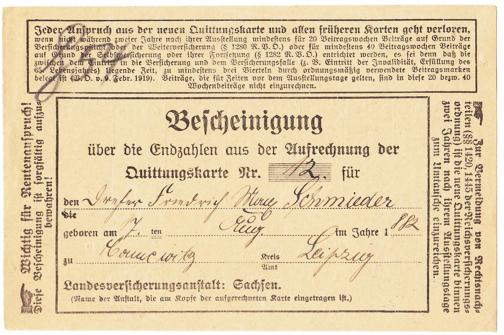 Jeder Anspruch aus der neuen Quittungskarte und allen früheren Karten geht verloren,
wenn nicht während zweier Jahre nach ihrer Ausstellung mindestens für 20 Beitragswochen Beiträge auf Grund der
Versicherungspflicht oder der Weiterversicherung (§ 1280 R.V.O.) oder für mindestens 40 Beitragswochen Beiträge
auf Grund der Selbstversicherung oder ihrer Fortsetzung (§ R.V.O.) entrichtet werden, es sei denn daß die
zwischen dem Eintritt in die Versicherung und dem Versicherungsfalle (z. B. Eintritt der Invalidität, Erfüllung des
65. Lebensjahres) liegende Zeit, zu mindestens drei Vierteln durch ordnungsmäßig verwendete Beitragsmarken
belegt ist (W.O. v. 6. Febr. 1919). Beiträge, die für Zeiten vor dem Ausstellungstage gelten, sind in diese 20 bezw. 40
Wochenbeiträge nicht einzurechnen.
Wichtig für Rentenanspruch!
Diese Bescheinigung ist sorgfältig aufzu-
bewahren!
Bescheinigung
über die Endzahlen aus der Aufrechnung der
Quittungskarte Nr. 12. für
den Dreher Friedrich Max Schmieder
die
geboren am 7. ten Aug. im Jahre 1882
zu Connewitz Kreis Amt Leipzig
Landesversicherungsanstalt: Sachsen.
(Name der Anstalt, die am Kopfe der aufgerechneten Karte eingetragen ist.)
Zur Vermeidung von Rechtsnach-
teilen (§§ 1420, 1445 der Reichsversicherungs-
ordnung) ist die neue Quittungskarte binnen
zwei Jahren nach ihrem Ausstellungstage
zum Umtausche einzureichen.